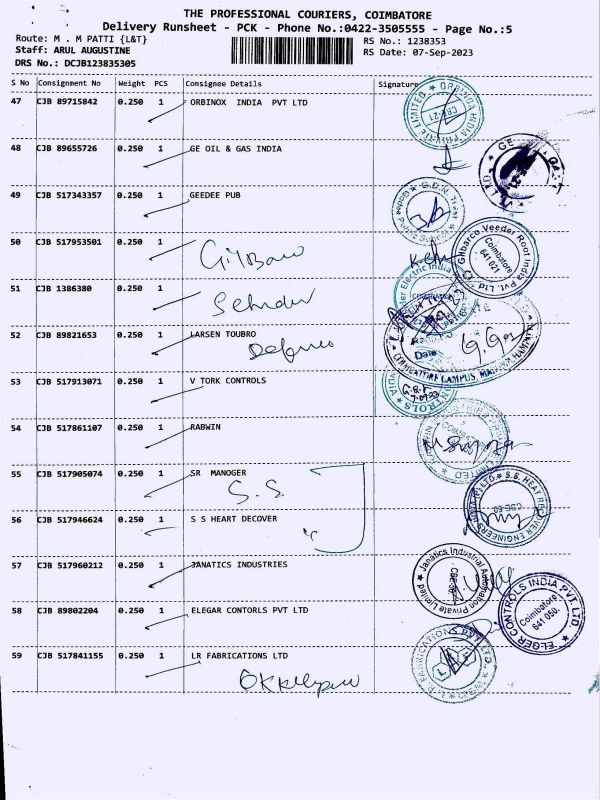 THE PROFESSIONAL COURIERS, COIMBATORE
Delivery Runsheet - PCK - Phone No.:0422-3505555 - Page No.:5
Route: M . M PATTI {L&T}
RS No.: 1238353
Staff: ARUL AUGUSTINE
RS Date: 07-Sep-2023
DRS No.: DCJB123835305
S No Consignment No Weight PCS Consignee Details Signature
47 CJB 89715842 0.250 1 ORBINOX INDIA PVT LTD
48 CJB 89655726 0.250 1 GE OIL & GAS INDIA
49 CJB 517343357 0.250 1 GEEDEE PUB
50 CJB 517953501 0.250 1
Gilbarco Veeder Root India Pvt. Ltd
Coimbatore
641 021
51 CJB 1386380 0.250 1
52 CJB 89821653 0.250 1 LARSEN TOUBRO
Date
53 CJB 517913071 0.250 1 V TORK CONTROLS
54 CJB 517861107 0.250 1 RABWIN
55 CJB 517905074 0.250 1 SR MANOGER
S.S.
56 CJB 517946624 0.250 1 S S HEART DECOVER
57 CJB 517960212 0.250 1 JANATICS INDUSTRIES
Janatics Industrial Automation Private Limited
58 CJB 89802204 0.250 1 ELEGAR CONTORLS PVT LTD
ELGER CONTROLS INDIA PVT. LTD
Coimbatore
641 050.
59 CJB 517841155 0.250 1 LR FABRICATIONS LTD